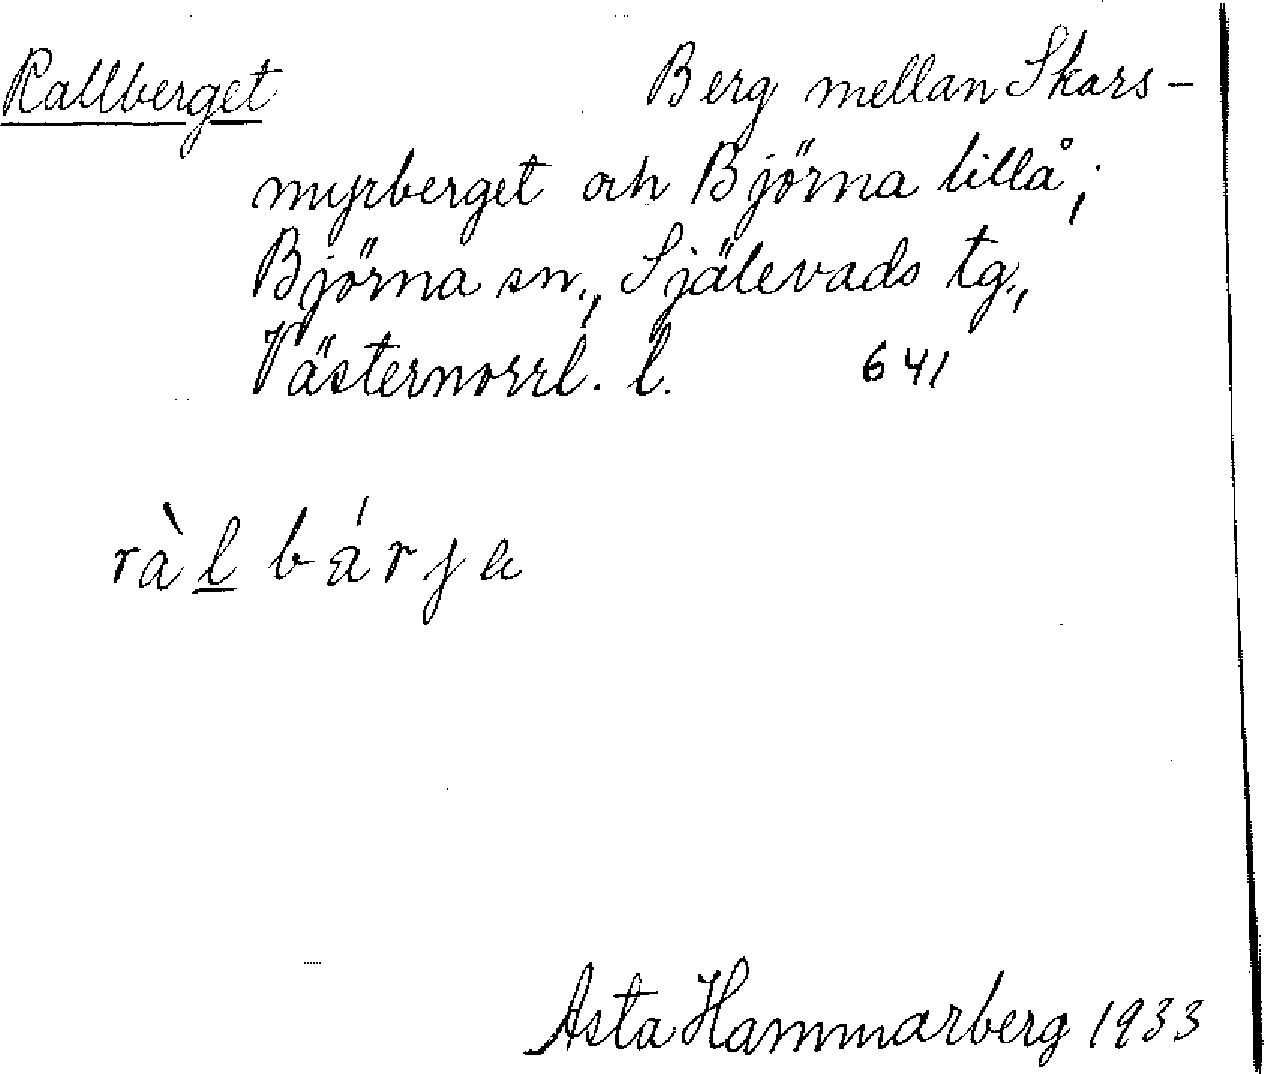 Rallberget Berg mellan Skars-
myrberget och Björna lillå;
Björna sn., Själevads tg.,
Västernorrl. l. 641
ràl bárja
Asta Hammarberg 1933